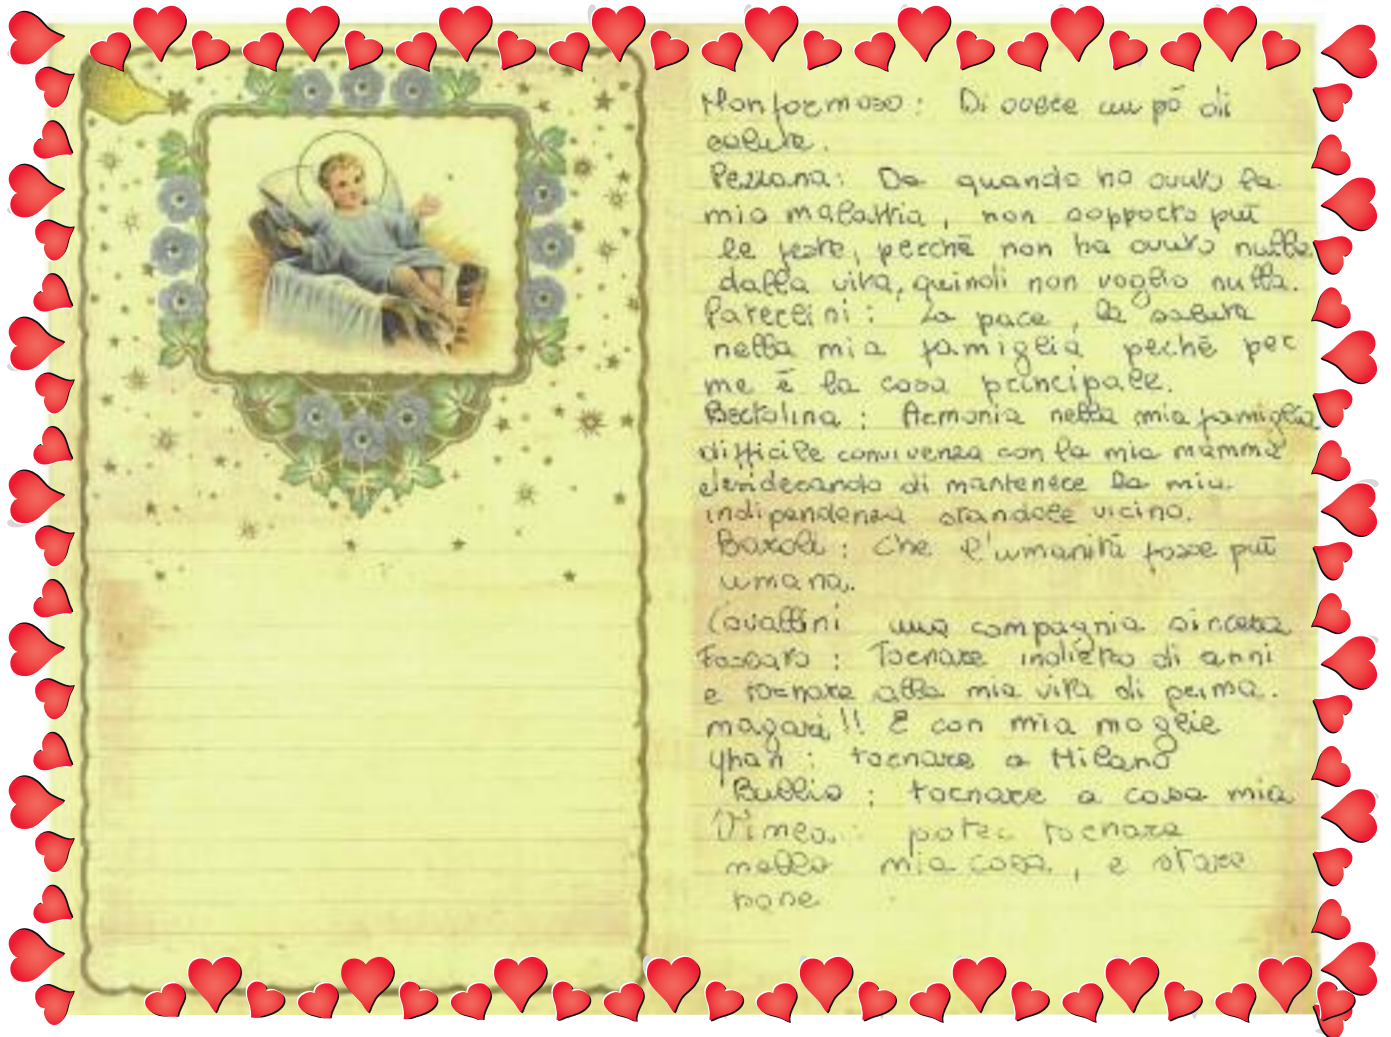 Monformoso: Di avere un pò di
salute.
Pezzana: Da quando ho avuto la
mia malattia, non sopporto più
le feste, perchè non ho avuto nulla
dalla vita, quindi non voglio nulla.
Parellini: La pace, la salute
nella mia famiglia pechè per
me è la cosa principale.
Bertolina: Armonia nella mia famiglia
difficile convivenza con la mia mamma
desiderando di mantenere la mia
indipendenza standole vicino.
Baroli: Che l'umanità fosse più
umana.
Cavallini una compagnia sincera
Fossaro: Tornare indietro di anni
e tornare alla mia vita di prima.
magari!! E con mia moglie
Yhan: tornare a Milano
Bullio: tornare a casa mia
Dimea: poter tornare
nella mia casa, e stare
bene